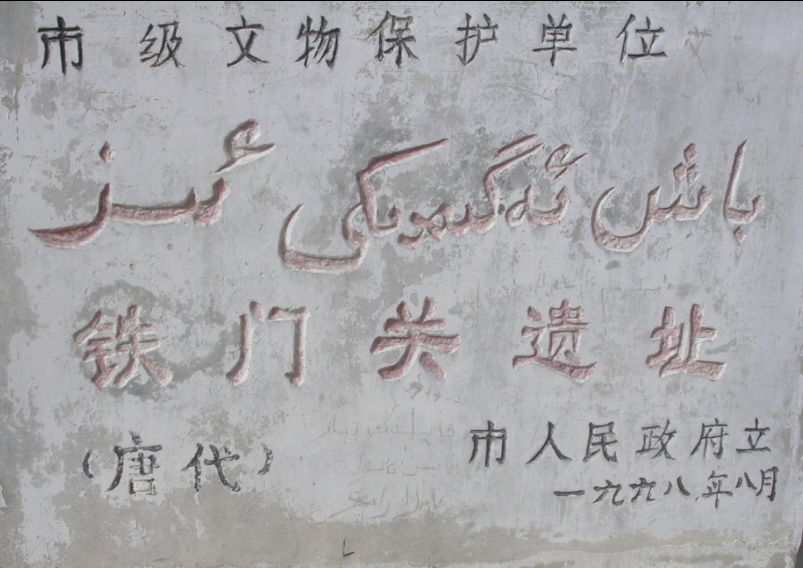 市级文物保护单位
باش ئەگىمدىكى ئىز
铁门关遗址
(唐代)
市人民政府立
一九九八年八月